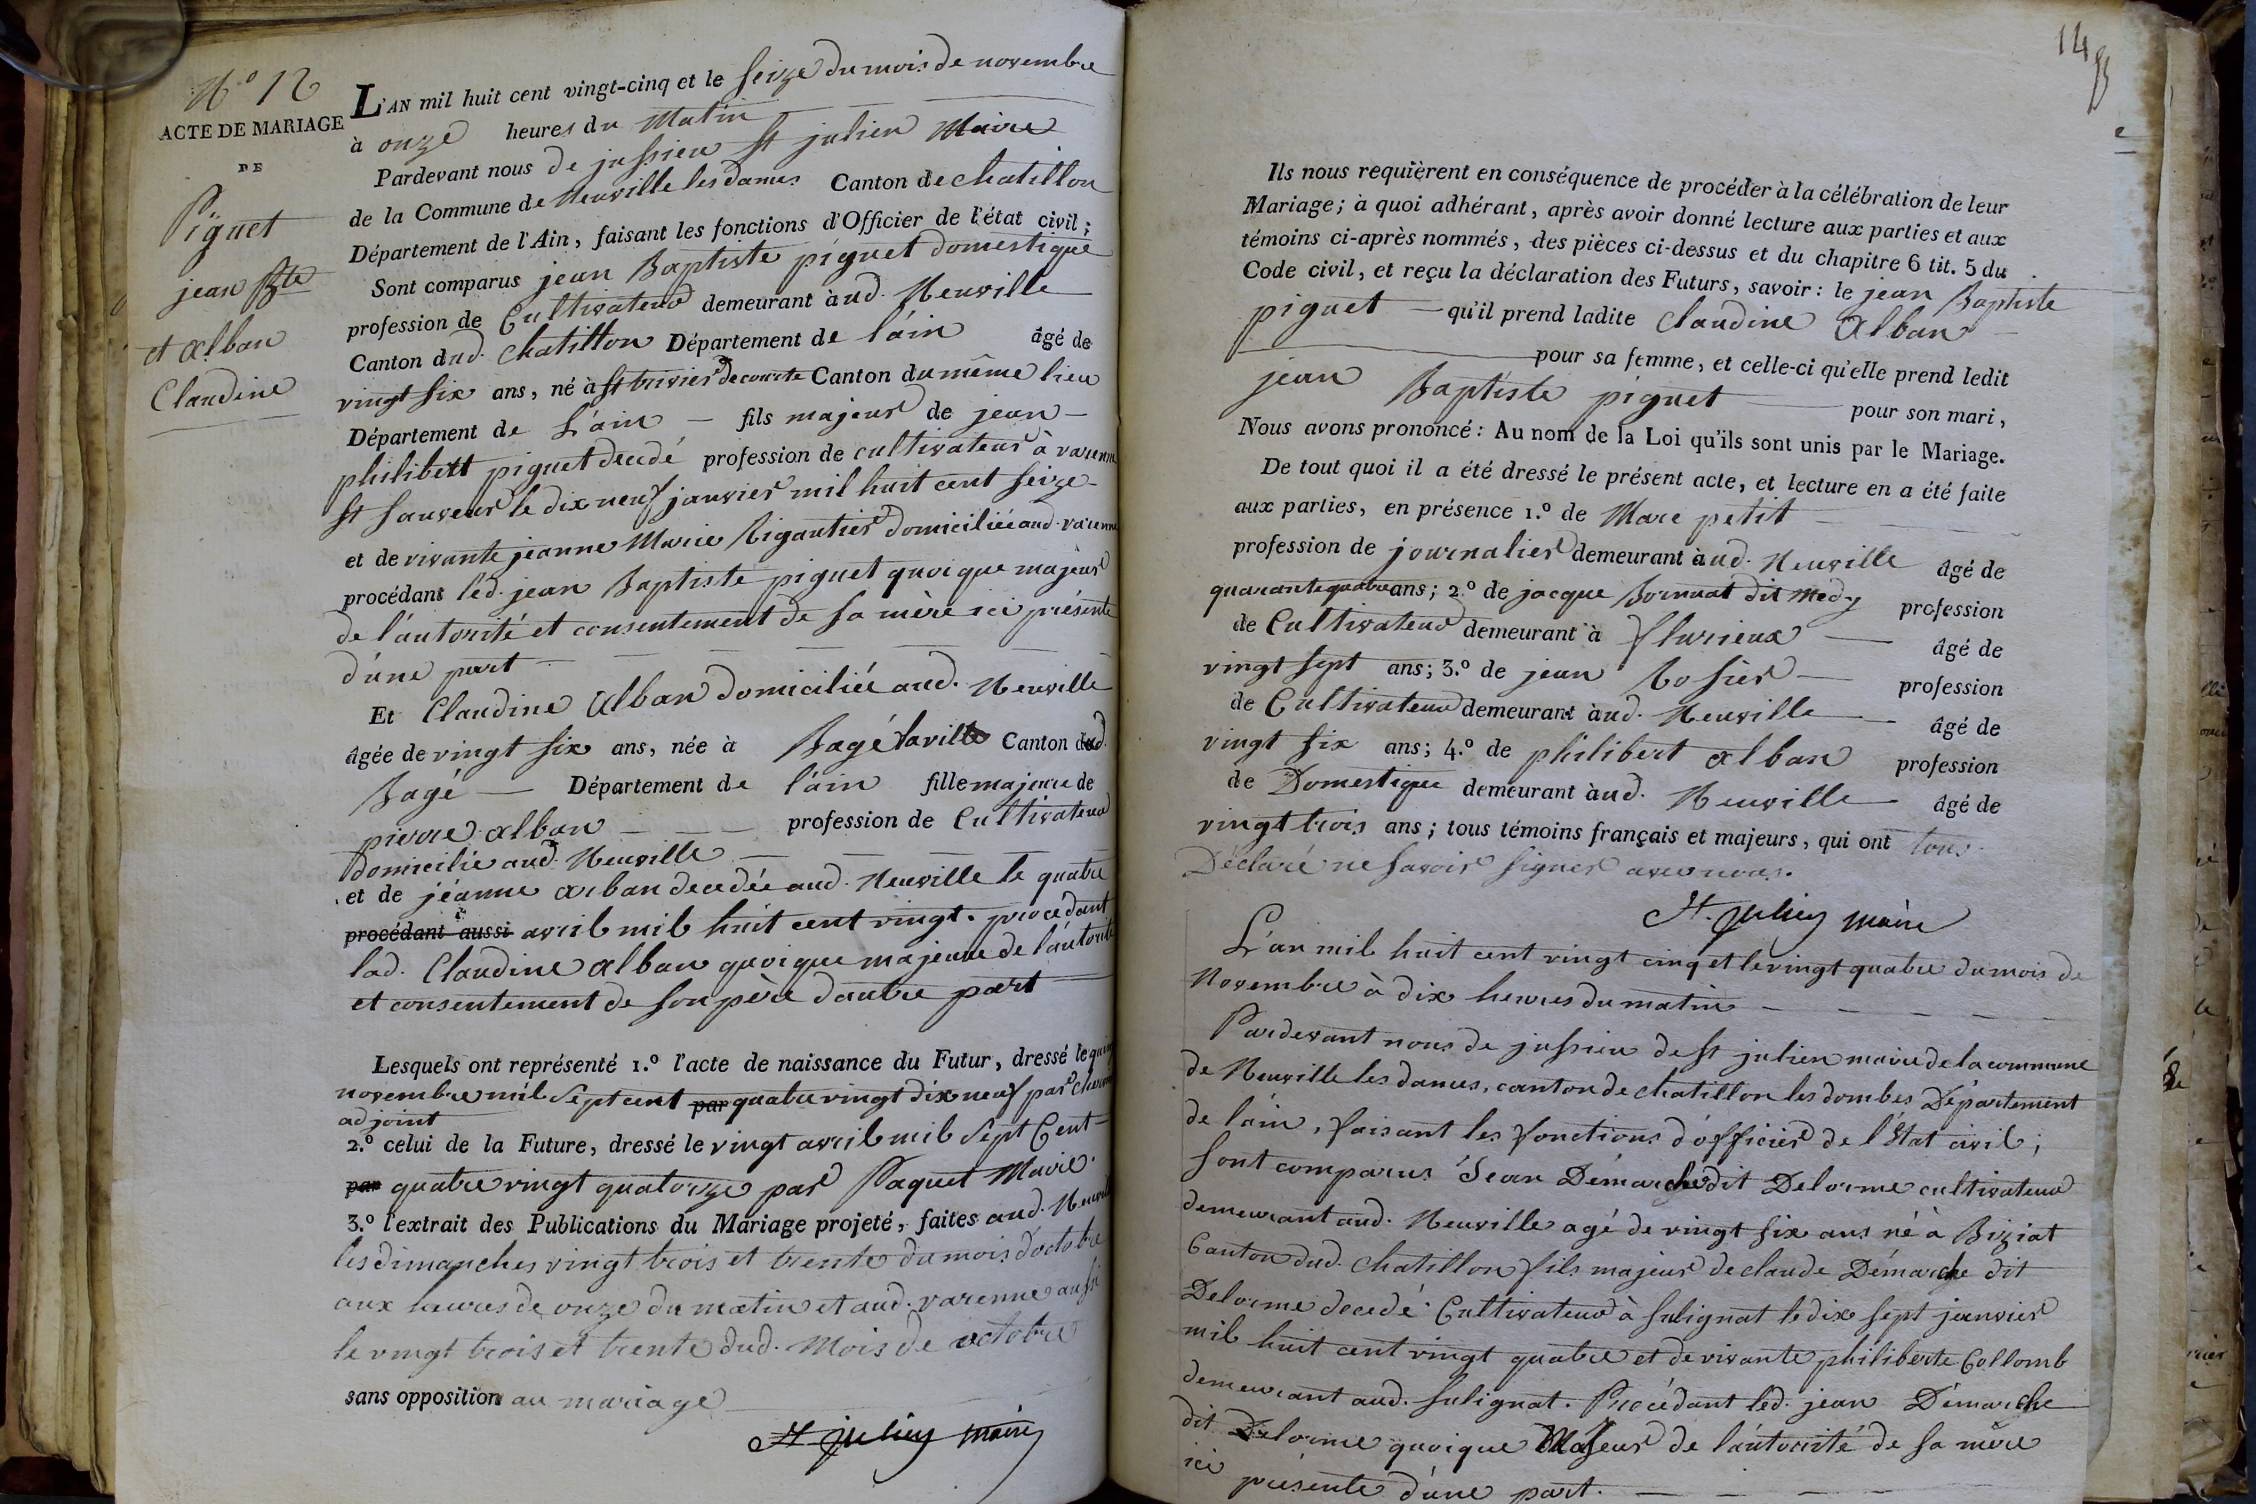 N.o 12
ACTE DE MARIAGE
DE
Piguet
jean Bte
et alban
Claudine
L'AN mil huit cent vingt-cinq et le seize du mois de novembre
à onze heures du Matin
Pardevant nous de jussieu st julien Maire
de la Commune de Neuville les dames Canton de chatillon
Département de l'Ain, faisant les fonctions d'Officier de l'état civil;
Sont comparus jean Baptiste piguet domestique
profession de Cultivateur demeurant à aud. Neuville
Canton dud. Chatillon Département de l'ain âgé de
vingt six ans, né à st trivier de courte Canton du même lieu
Département de L'ain fils majeur de jean
philibert piguet decedé profession de cultivateur à varenne
st sauveur le dix neuf janvier mil huit cent seize
et de vivante jeanne Marie Rigautier domiciliée aud. varenne
procédant led. jean Baptiste piguet quoique majeur
de l'autorité et consentement de sa mère ici présente
d'une part
Et Claudine Alban domiciliée aud. Neuville
âgée de vingt six ans, née à Bagé laville Canton dud.
Bagé Département de l'ain fille majeure de
pierre alban profession de Cultivateur
domicilié aud. Neuville
et de jéanne alban decedée aud. Neuville le quatre
procédant aussi avril mil huit cent vingt. procédant
lad. Claudine alban quoique majeure de l'autorité
et consentement de son père dautre part
Lesquels ont représenté 1.º l'acte de naissance du Futur, dressé le
novembre mil sept cent par quatre vingt dix neuf par
adjoint
2.º celui de la Future, dressé le vingt avril mil sept Cent
par quatre vingt quatorze par Paquet Maire.
3.º l'extrait des Publications du Mariage projeté, faites aud. Neuville
les dimanches vingt trois et trente du mois d'octobre
aux heures de onze du matin et aud. varenne aussi
le vingt trois et trente dud. Mois de octobre
sans opposition au mariage
St julien maire
14
Ils nous requièrent en conséquence de procéder à la célébration de leur
Mariage; à quoi adhérant, après avoir donné lecture aux parties et aux
témoins ci-après nommés, des pièces ci-dessus et du chapitre 6 tit. 5 du
Code civil, et reçu la déclaration des Futurs, savoir: le jean Baptiste
piguet qu'il prend ladite Claudine Alban
pour sa femme, et celle-ci qu'elle prend ledit
jean Baptiste piguet pour son mari,
Nous avons prononcé: Au nom de la Loi qu'ils sont unis par le Mariage.
De tout quoi il a été dressé le présent acte, et lecture en a été faite
aux parties, en présence 1.º de Marc petit
profession de journalier demeurant à aud. Neuville âgé de
quarante quatre ans; 2.º de jacque Bornuat dit Medy profession
de Cultivateur demeurant à flurieux âgé de
vingt sept ans; 3.º de jean Rosier profession
de Cultivateur demeurant à aud. Neuville âgé de
vingt six ans; 4.º de philibert alban profession
de Domestique demeurant à aud. Neuville âgé de
vingt trois ans; tous témoins français et majeurs, qui ont tous
Déclaré ne savoir signer avec nous.
St. julien maire
L'an mil huit cent vingt cinq et le vingt quatre du mois de
Novembre à dix heures du matin
Pardevant nous de jussieu de st julien maire de la commune
de Neuville les dames, canton de chatillon les dombes Département
de l'ain, faisant les fonctions d'officier de l'État civil;
sont comparus Jean Démarche dit Delorme cultivateur
demeurant aud. Neuville agé de vingt six ans né à Biziat
Canton dud. Chatillon fils majeur de claude Démarche dit
Delorme decedé Cultivateur à sulignat le dix sept janvier
mil huit cent vingt quatre et de vivante philiberte Collomb
demeurant aud. sulignat. Procédant led. jean Démarche
dit Delorme quoique Majeur de l'autorité de sa mère
ici présente d'une part.